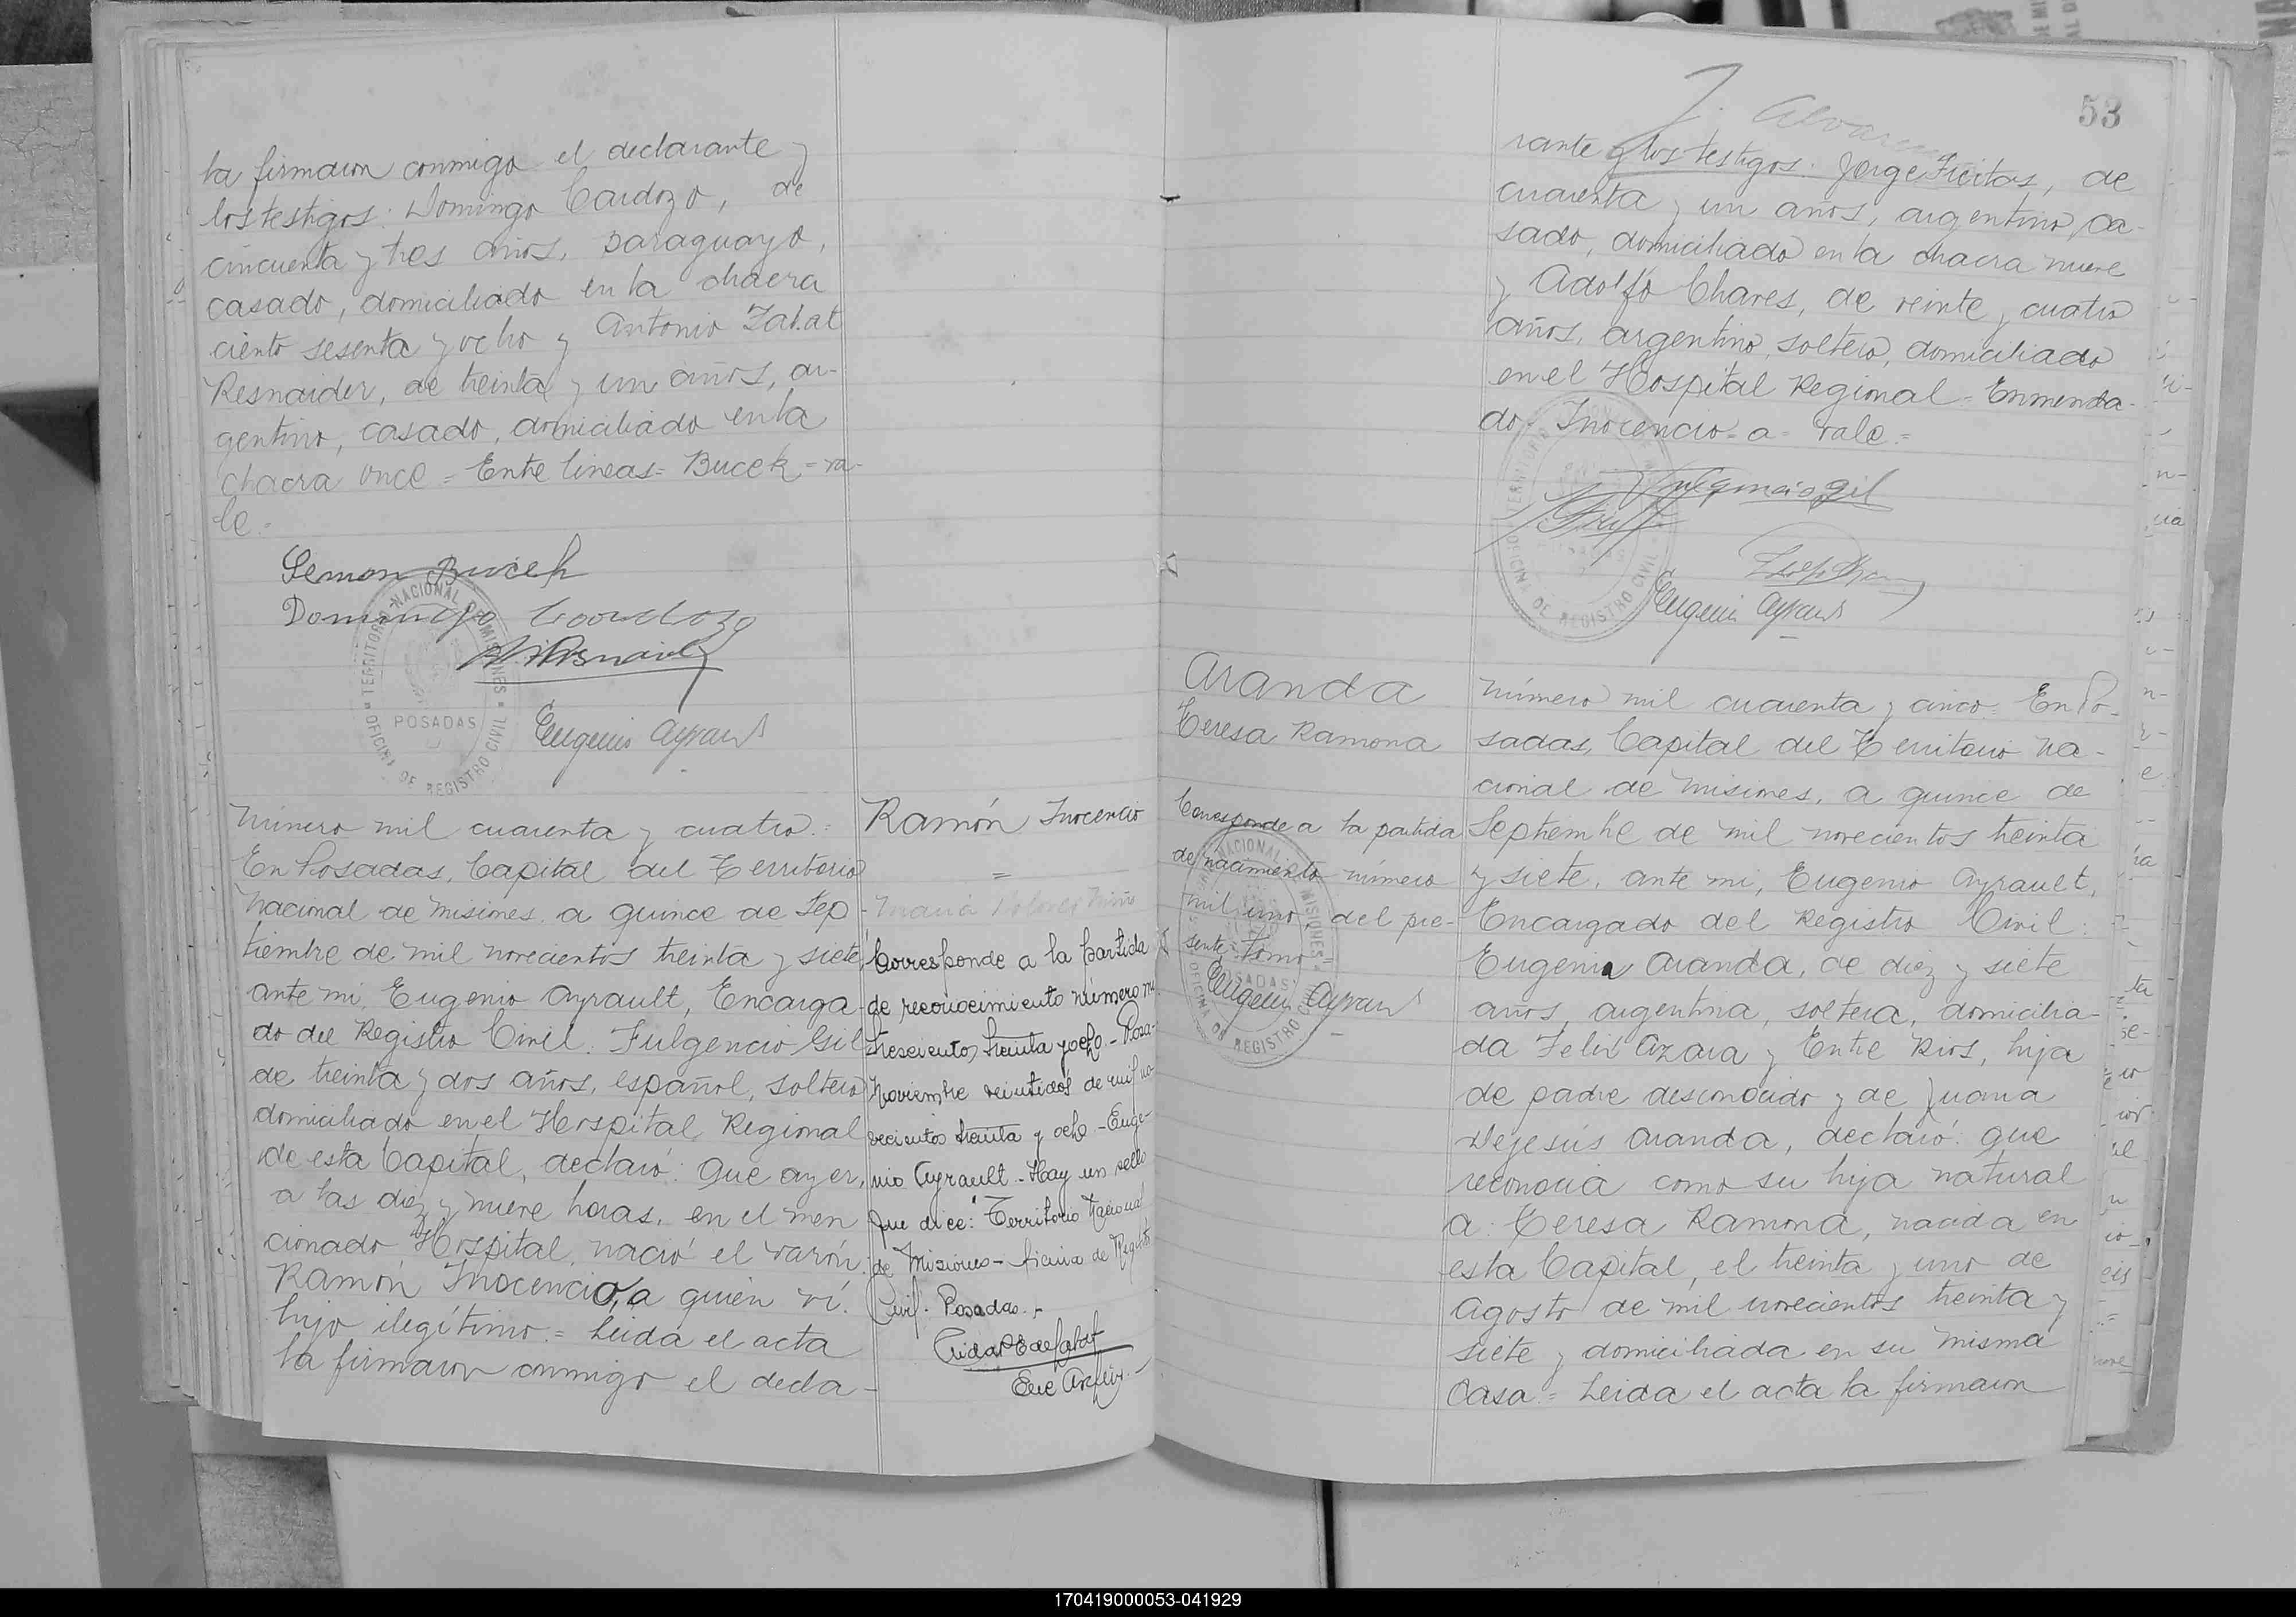 la firmaron conmigo el declarante y
los testigos: Domingo Cardozo, de
cincuenta y tres años, paraguayo,
casado, domiciliado en la chacra
ciento sesenta y ocho y Antonio Zabat
Resnaider, de treinta y un años, ar-
gentino, casado, domiciliado en la
chacra once = Entre lineas = Bucek = va-
le =
Semon Bucek
Domingo Cardozo
TERRITORIO NACIONAL DE MISIONES
POSADAS
OFICINA DE REGISTRO CIVIL
Eugenio Ayrault
Número mil cuarenta y cuatro =
En Posadas, Capital del Territorio
Nacional de Misiones a quince de Sep-
tiembre de mil novecientos treinta y siete,
ante mi, Eugenio Ayrault, Encarga-
do del Registro Civil: Fulgencio Gil
de treinta y dos años, español, soltero
domiciliado en el Hospital Regional
de esta Capital, declaró: Que ayer,
a las diez y nueve horas, en el men
cionado Hospital, nació el varón:
Ramón Inocencio, a quién ví.
hijo ilegítimo = Leida el acta
la firmaron conmigo el decla-
Ramón Inocencio
=
Maria Dolores
Corresponde a la partida
de reconocimiento número
trescientos treinta y ocho - Posa-
Noviembre veintidós de mil no-
vecientos treinta y ocho - Euge-
nio Ayrault - Hay un sello
que dice: "Territorio Nacional
de Misiones - Oficina de Registro
Civil. Posadas.
53
J. Alvarez
rante y los testigos: Jorge Freitas, de
cuarenta y un años, argentino, ca-
sado, domiciliado en la chacra nueve
y Adolfo Chaves, de veinte y cuatro
años, argentino, soltero, domiciliado
en el Hospital Regional = Enmenda-
do = Inocencio = a = vale =
Fulgencio Gil
Eugenio Ayrault
OFICINA DE REGISTRO CIVIL
Aranda
Teresa Ramona
Corresponde a la partida
de nacimiento número
mil uno, del pre-
sente tomo
Eugenio Ayrault
Número mil cuarenta y cinco = En Po-
sadas, Capital del Territorio Na-
cional de Misiones, a quince de
Septiembre de mil novecientos treinta
y siete, ante mi, Eugenio Ayrault,
Encargado del Registro Civil:
Eugenia Aranda, de diez y siete
años, argentina, soltera, domicilia-
da Felix Azara y Entre Rios, hija
de padre desconocido y de Juana
Dejesús Aranda, declaró: Que
reconocia como su hija natural
a: Teresa Ramona, nacida en
esta Capital, el treinta y uno de
Agosto de mil novecientos treinta y
siete y domiciliada en su misma
Casa = Leida el acta la firmaron
170419000053-041929